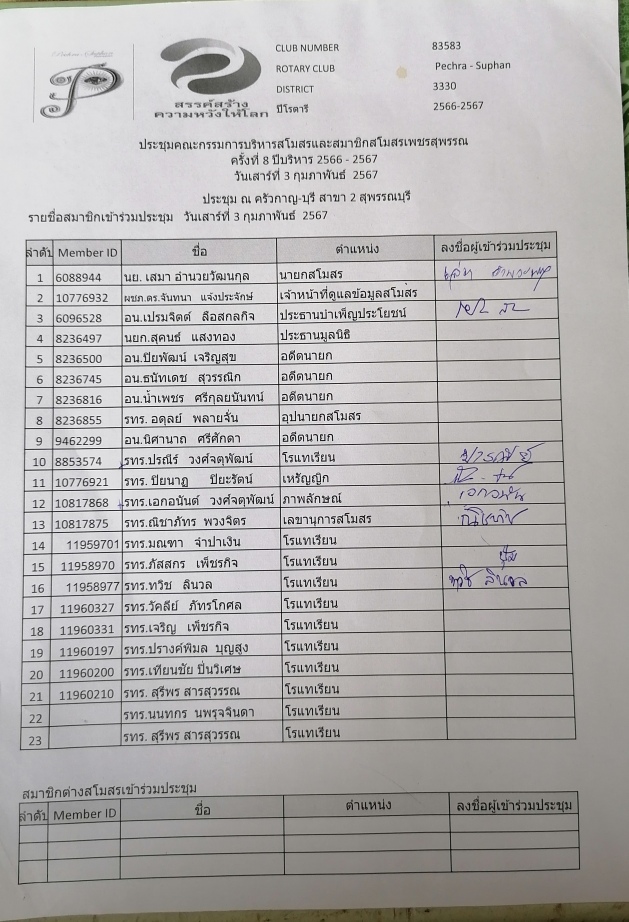 CLUB NUMBER 83583
ROTARY CLUB Pechra - Suphan
DISTRICT 3330
ปีโรตารี 2566-2567
สรรค์สร้าง
ความหวังให้โลก
ประชุมคณะกรรมการบริหารสโมสรและสมาชิกสโมสรเพชรสุพรรณ
ครั้งที่ 8 ปีบริหาร 2566 - 2567
วันเสาร์ที่ 3 กุมภาพันธ์ 2567
ประชุม ณ ครัวกาญ-บุรี สาขา 2 สุพรรณบุรี
รายชื่อสมาชิกเข้าร่วมประชุม วันเสาร์ที่ 3 กุมภาพันธ์ 2567
ลำดับ Member ID ชื่อ ตำแหน่ง ลงชื่อผู้เข้าร่วมประชุม
1 6088944 นย. เสมา อำนวยวัฒนกุล นายกสโมสร
2 10776932 ผชภ.ดร.จันทนา แจ้งประจักษ์ เจ้าหน้าที่ดูแลข้อมูลสโมสร
3 6096528 อน.เปรมจิตต์ ลือสกลกิจ ประธานบำเพ็ญประโยชน์
4 8236497 นยก.สุคนธ์ แสงทอง ประธานมูลนิธิ
5 8236500 อน.ปิยพัฒน์ เจริญสุข อดีตนายก
6 8236745 อน.ธนัทเดช สุวรรณิก อดีตนายก
7 8236816 อน.น้ำเพชร ศรีกุลยนันทน์ อดีตนายก
8 8236855 รทร. อดุลย์ พลายจั่น อุปนายกสโมสร
9 9462299 อน.นิศานาถ ศรีศักดา อดีตนายก
10 8853574 รทร.ปรณีร์ วงศ์จตุพัฒน์ โรแทเรียน
11 10776921 รทร. ปิยนาฏ ปิยะรัตน์ เหรัญญิก
12 10817868 รทร.เอกอนันต์ วงศ์จตุพัฒน์ ภาพลักษณ์ เอกอนันต์
13 10817875 รทร.ณิชาภัทร พวงจิตร เลขานุการสโมสร
14 11959701 รทร.มณฑา จำปาเงิน โรแทเรียน
15 11958970 รทร.ภัสสกร เพ็ชรกิจ โรแทเรียน
16 11958977 รทร.ทวิช ลินวล โรแทเรียน ทวิช ลินวล
17 11960327 รทร.วัคลีย์ ภัทรโกศล โรแทเรียน
18 11960331 รทร.เจริญ เพ็ชรกิจ โรแทเรียน
19 11960197 รทร.ปรางค์พิมล บุญสูง โรแทเรียน
20 11960200 รทร.เทียนชัย ปิ่นวิเศษ โรแทเรียน
21 11960210 รทร. สุรีพร สารสุวรรณ โรแทเรียน
22 รทร.นนทกร นพรุจจินดา โรแทเรียน
23 รทร. สุรีพร สารสุวรรณ โรแทเรียน
สมาชิกต่างสโมสรเข้าร่วมประชุม
ลำดับ Member ID ชื่อ ตำแหน่ง ลงชื่อผู้เข้าร่วมประชุม